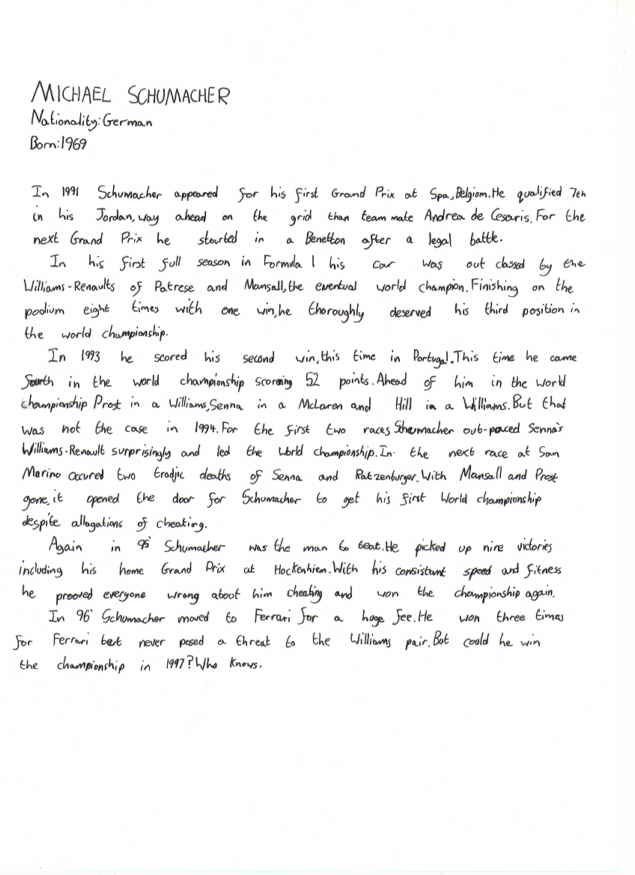 MICHAEL SCHUMACHER
Nationality: German
Born: 1969
In 1991 Schumacher appeared for his first Grand Prix at Spa, Belgium. He qualified 7th
in his Jordan, way ahead on the grid than team mate Andrea de Cesaris. For the
next Grand Prix he started in a Benetton after a legal battle.
In his first full season in Formula 1 his car was out classed by the
Williams-Renaults of Patrese and Mansall, the eventual world champion. Finishing on the
podium eight times with one win, he thoroughly deserved his third position in
the world championship.
In 1993 he scored his second win, this time in Portugal. This time he came
fourth in the world championship scoreing 52 points. Ahead of him in the world
championship Prost in a Williams, Senna in a McLaren and Hill in a Williams. But that
was not the case in 1994. For the first two races Schumacher out-paced Senna's
Williams-Renault surprisingly and led the World championship. In the next race at San
Marino occured two tradjic deaths of Senna and Ratzenburger. With Mansall and Prost
gone, it opened the door for Schumacher to get his first World championship
despite allagations of cheating.
Again in 95' Schumacher was the man to beat. He picked up nine victories
including his home Grand Prix at Hockenhien. With his consistant speed and fitness
he prooved everyone wrong about him cheating and won the championship again.
In 96' Schumacher moved to Ferrari for a huge fee. He won three times
for Ferrari but never posed a threat to the Williams pair. But could he win
the championship in 1997? Who knows.